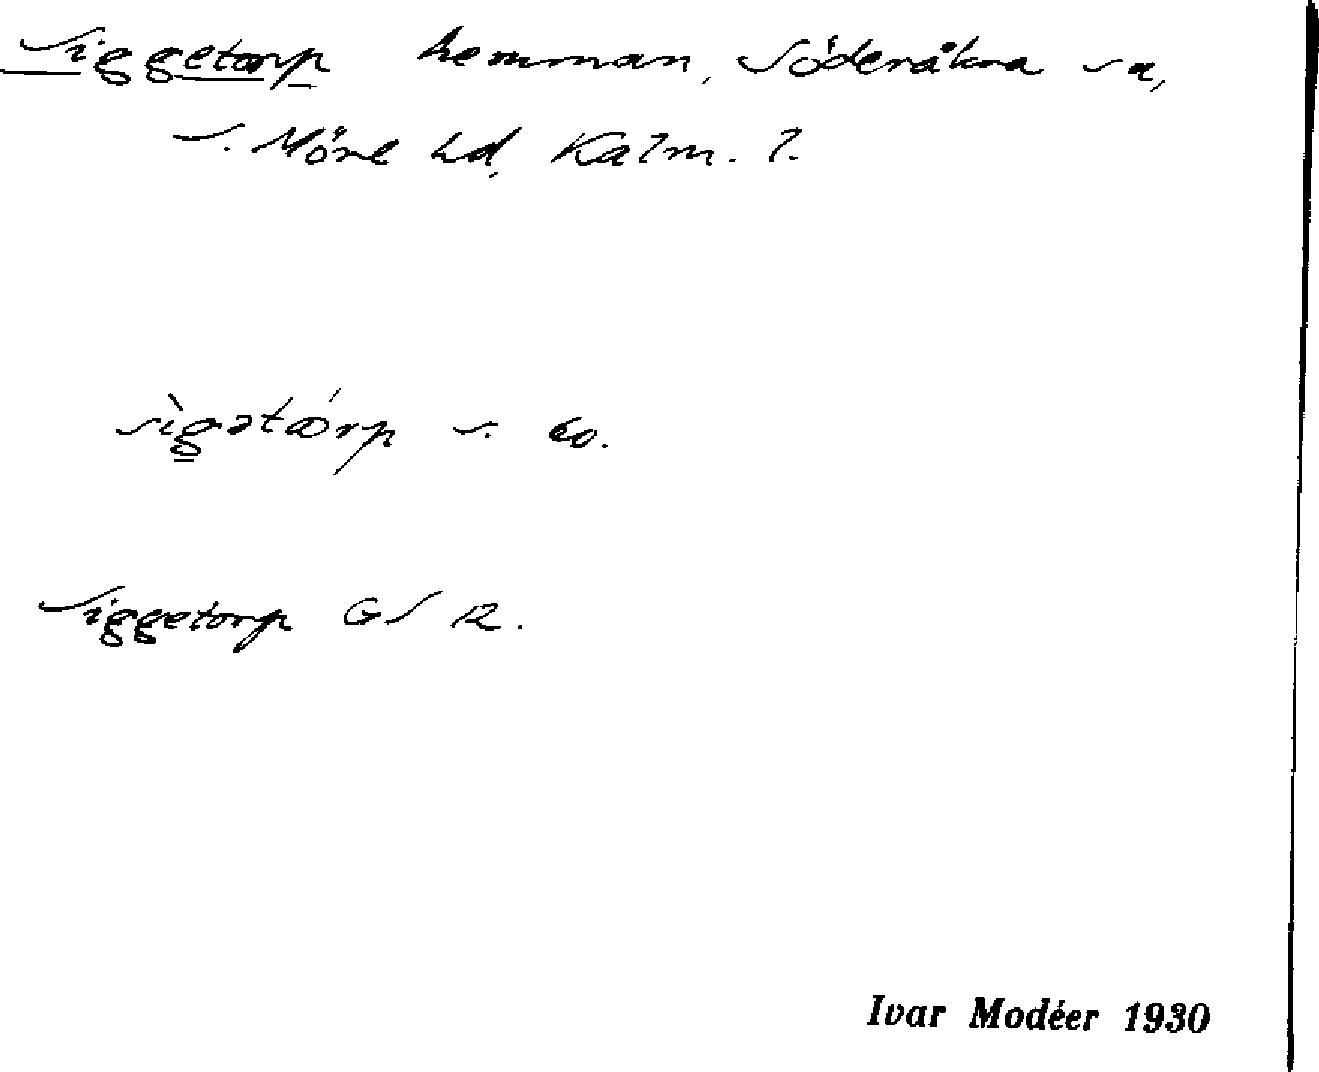 Siggetorp hemman, Söderåkra sn,
S. Möre hd, Kalm. l.
s. co.
Siggetorp GS 12.
Ivar Modéer 1930